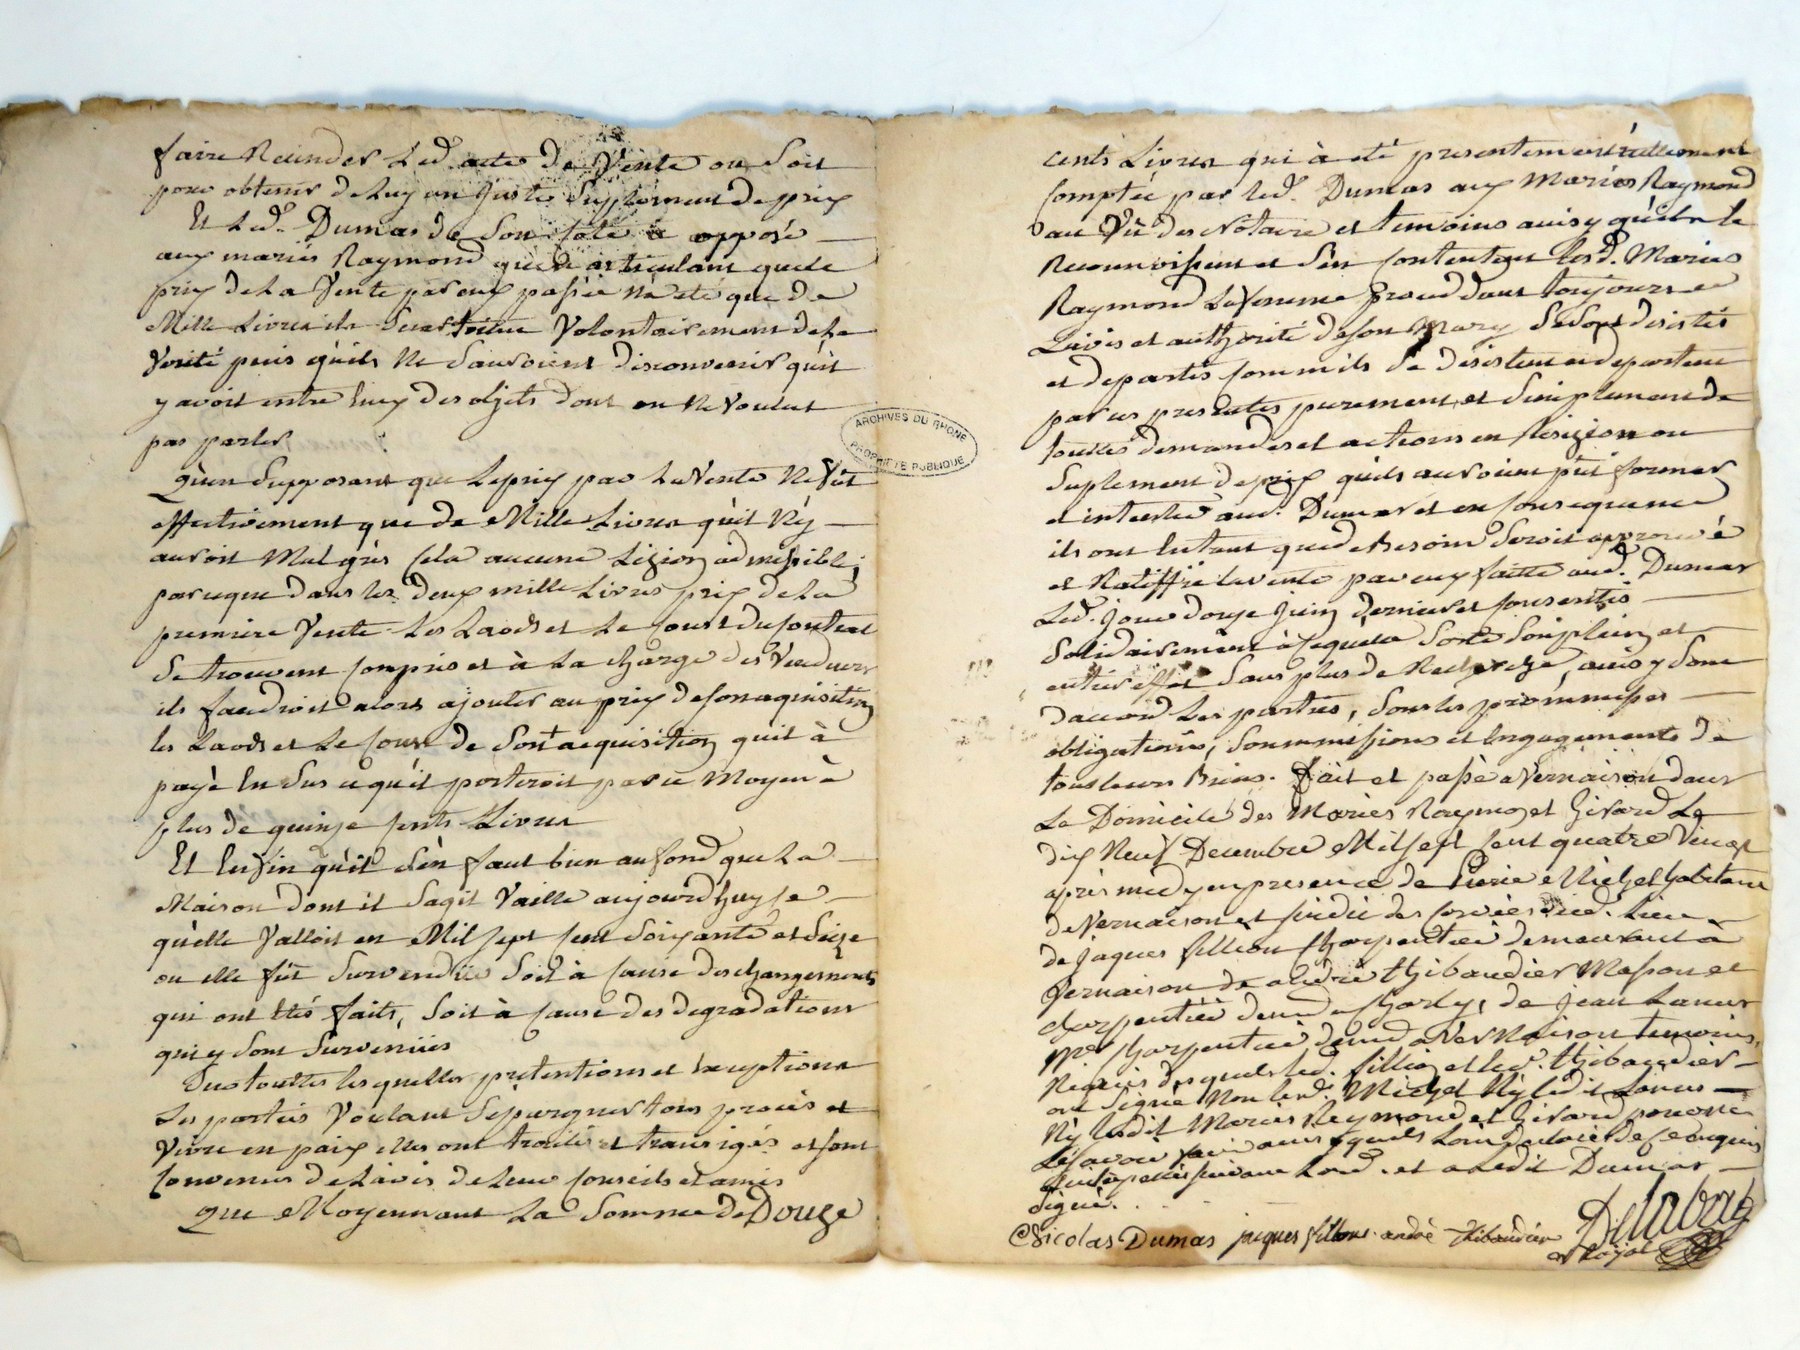 faire Recinder Led. acte de Vente ou Soit
pour obtenir de Luy un Juste Supplement de prix
Et Led. Dumas de Son Coté a opposé
aux mariés Raymond qu'en articulant que le
prix de La Vente par eux passée N'a eté que de
Mille Livres ils Volontairement de La
Verité puis qu'ils Ne Sauroient disconvenir qu'il
y avoit entre Eux des objets dont on Ne Voulut
pas parler
Qu'en Supposant que Le prix par La Vente Ne fût
effectivement que de Mille Livres qu'il N'y
auroit Malgrès Cela aucune Lézion admissible;
parceque dans les deux mille Livres prix de La
premiere Vente Les Laods et Le Cout du Contrat
Se trouvent Compris et à La charge des Vendeurs
ils faudroit alors ajouter au prix de Son aquisition
les Laods et Le Cout de Son acquisition qu'il à
payé En Sus ce qu'il porteroit par ce Moyen à
plus de quinze Cents Livres
Et Enfin qu'il S'en faut bien au fond que La
Maison dont il S'agit Vaille aujourd'huy Ce
qu'elle Valloit en Mil Sept Cent Soixante et Seize
ou elle fût Survendüe Soit à Cause des changements
qui ont Etés faits, Soit à Cause des degradations
qui y Sont Survenües
Sur touttes Les quelles prétentions et Exceptions
Les parties Voulant S'epargner tous procès et
Vivre en paix elles ont traités et transigés et Sont
Convenus de L'avis de Leur Conseils et amis
Que Moyennant La Somme de Douze
ARCHIVES DU RHONE
PROPRIETE PUBLIQUE
cents Livres qui à eté presentement réellement
Comptée par Led. Dumas aux Mariés Raymond
au Vû des Notaire et temoins ainsy qu'ils le
Reconnoissent et S'en Contentent Lesd. Mariés
Raymond La femme procedant toujours de
L'avis et authorité de Son Mary Se Sont désistés
et departis Comme ils Se desistent et departent
par ces presentes purement et Simplement de
touttes demandes et actions en Lézion ou
Suplement de prix qu'ils auroient pû former
et intenter aud. Dumas et en Consequence
ils ont Entant que de Besoin Seroit approuvé
et Ratiffié la vente par eux faitte aud. Dumas
Led. Jour douze Juin dernier et Consentis
Solidairement à Ce qu'elle Sorte Son plein et
entier effet Sans plus de Recherche, ainsy Sont
d'accord Les parties, Sous les prommesses
obligations, Soummissions et Engagements de
tous leurs Biens. Fait et passé a Vernaison dans
Le Domicile des Mariés Raymond et Girard Le
dix Neuf Decembre Mil Sept Cent quatre Vingt
après midy en presence de Pierre Michel habitant
de Vernaison et Sindic des Corvées dud. Lieu
de Jaques fillion Charpentier demeurant à
Vernaison de André Thibaudier Masson et
Charpentier demt a Charly, de Jean Laneur
Me Charpentier demt a Vernaison temoins,
Requis desquels Led. fillion et led. Thibaudier
ont Signé Non Led. Michel Ny Ledit Laneur
Ny Lesdit Mariés Reymond et Girard pour ne
Le Savoir faire ainsy qu'ils L'ont déclaré de Ce Enquis
et interpellés Suivant L'ord. et a Ledit Dumas
Signé.
Nicolas Dumas jacques fillion andré thibaudier Delabat
nr Royal